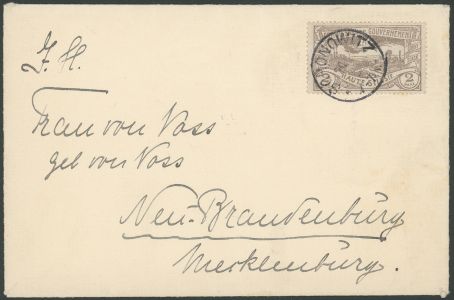 J. H.
Frau von Voss
geb von Voss
Neu-Brandenburg
Mecklenburg.
GOUVERNEMENT
HAUTE
2